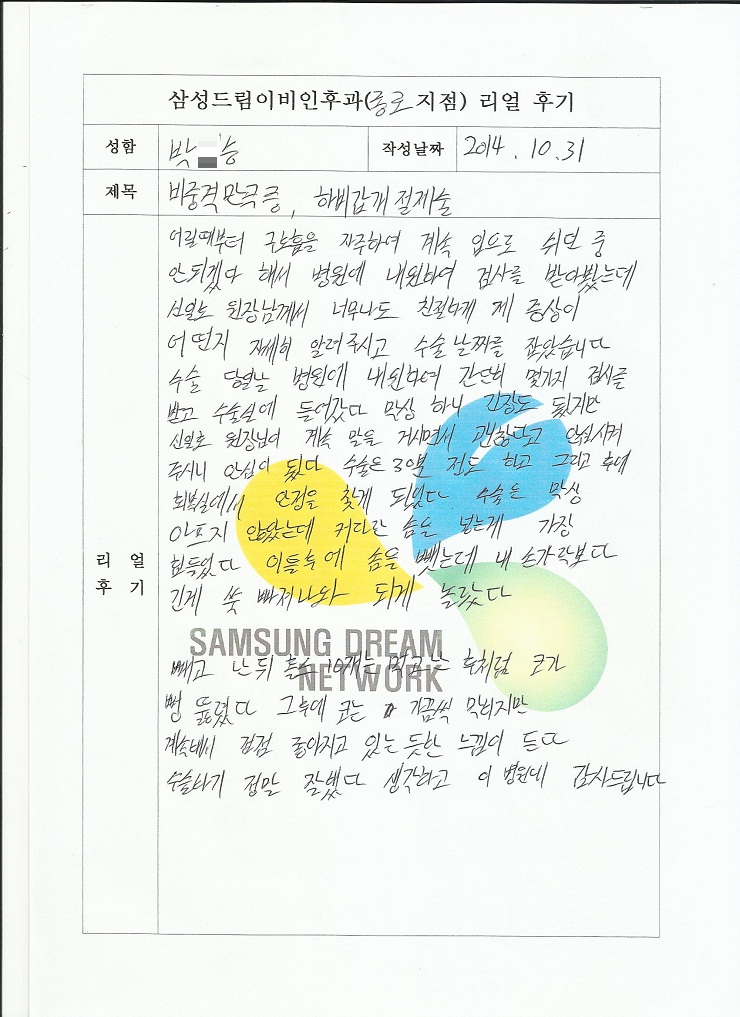 삼성드림이비인후과(종로 지점) 리얼 후기
성함 박 승 작성날짜 2014. 10. 31
제목 비중격만곡증, 하비갑개 절제술
어릴때부터 구호흡을 자주하여 계속 입으로 쉬던 중
안되겠다 해서 병원에 내원하여 검사를 받아봤는데
신일호 원장님께서 너무나도 친절하게 제 증상이
어떤지 자세히 알려주시고 수술날짜를 잡았습니다
수술 당일날 병원에 내원하여 간단히 몇가지 검사를
받고 수술실에 들어갔다 막상 하니 긴장도 됬지만
신일호 원장님이 계속 말을 거시면서 괜찮다고 안심시켜
주시니 안심이 됬다 수술은 30분 정도 하고 그리고 후에
회복실에서 안정을 찾게 되었다 수술은 막상
아프지 않았는데 커다란 솜을 넣는게 가장
힘들었다 이틀후에 솜을 뺏는데 내 손가락보다
긴게 쑥 빠져나와 되게 놀랐다
리 얼
후 기
SAMSUNG DREAM
NETWORK
빼고 난 뒤 홀스 10개는 먹고 난 후처럼 코가
뻥 뚫렸다 그후에 코는 가끔씩 막히지만
계속해서 점점 좋아지고 있는 듯한 느낌이 든다
수술하기 정말 잘했다 생각하고 이 병원에 감사드립니다